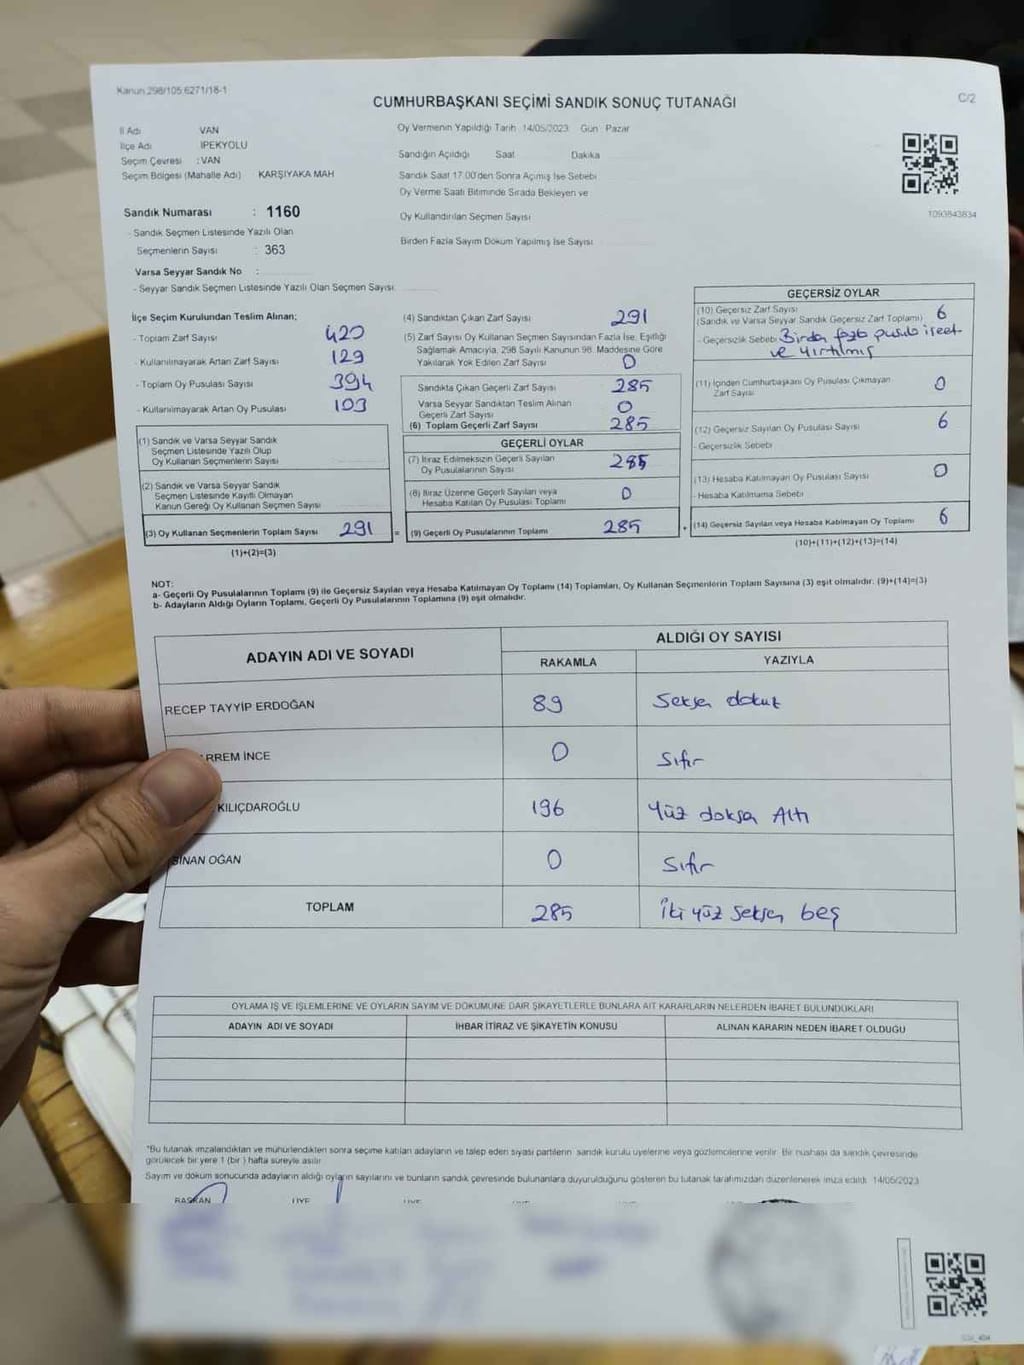 Kanun 298/105 6271/18-1
CUMHURBAŞKANI SEÇİMİ SANDIK SONUÇ TUTANAĞI
C/2
İl Adı VAN
İlçe Adı İPEKYOLU
Seçim Çevresi : VAN
Seçim Bölgesi (Mahalle Adı) KARŞIYAKA MAH
Sandık Numarası : 1160
- Sandık Seçmen Listesinde Yazılı Olan
Seçmenlerin Sayısı : 363
Varsa Seyyar Sandık No :
- Seyyar Sandık Seçmen Listesinde Yazılı Olan Seçmen Sayısı:
Oy Vermenin Yapıldığı Tarih 14/05/2023 Gün : Pazar
Sandığın Açıldığı Saat Dakika
Sandık Saat 17.00'den Sonra Açımış İse Sebebi
Oy Verme Saati Bitiminde Sırada Bekleyen ve
Oy Kullandırılan Seçmen Sayısı
Birden Fazla Sayım Döküm Yapılmış İse Sayısı
1093843834
İlçe Seçim Kurulundan Teslim Alınan;
- Toplam Zarf Sayısı 420
- Kullanılmayarak Artan Zarf Sayısı 129
- Toplam Oy Pusulası Sayısı 394
- Kullanılmayarak Artan Oy Pusulası 103
(1) Sandık ve Varsa Seyyar Sandık
Seçmen Listesinde Yazılı Olup
Oy Kullanan Seçmenlerin Sayısı
(2) Sandık ve Varsa Seyyar Sandık
Seçmen Listesinde Kayıtlı Olmayan
Kanun Gereği Oy Kullanan Seçmen Sayısı
(3) Oy Kullanan Seçmenlerin Toplam Sayısı 291 =
(1)+(2)=(3)
(4) Sandıktan Çıkan Zarf Sayısı 291
(5) Zarf Sayısı Oy Kullanan Seçmen Sayısından Fazla İse, Eşitliği
Sağlamak Amacıyla, 298 Sayılı Kanunun 98. Maddesine Göre
Yakılarak Yok Edilen Zarf Sayısı 0
Sandıkta Çıkan Geçerli Zarf Sayısı 285
Varsa Seyyar Sandıktan Teslim Alınan
Geçerli Zarf Sayısı 0
(6) Toplam Geçerli Zarf Sayısı 285
GEÇERLİ OYLAR
(7) İtiraz Edilmeksizin Geçerli Sayılan
Oy Pusulalarının Sayısı 285
(8) İtiraz Üzerine Geçerli Sayılan veya
Hesaba Katılan Oy Pusulası Toplamı 0
(9) Geçerli Oy Pusulalarının Toplamı 285 +
GEÇERSİZ OYLAR
(10) Geçersiz Zarf Sayısı
(Sandık ve Varsa Seyyar Sandık Geçersiz Zarf Toplamı) 6
- Geçersizlik Sebebi Birden fazla pusula işaet-
ve yırtılmış
(11) İçinden Cumhurbaşkanı Oy Pusulası Çıkmayan
Zarf Sayısı 0
(12) Geçersiz Sayılan Oy Pusulası Sayısı 6
- Geçersizlik Sebebi
(13) Hesaba Katılmayan Oy Pusulası Sayısı 0
- Hesaba Katılmama Sebebi
(14) Geçersiz Sayılan veya Hesaba Katılmayan Oy Toplamı 6
(10)+(11)+(12)+(13)=(14)
NOT:
a- Geçerli Oy Pusulalarının Toplamı (9) ile Geçersiz Sayılan veya Hesaba Katılmayan Oy Toplamı (14) Toplamları, Oy Kullanan Seçmenlerin Toplam Sayısına (3) eşit olmalıdır. (9)+(14)=(3)
b- Adayların Aldığı Oyların Toplamı, Geçerli Oy Pusulalarının Toplamına (9) eşit olmalıdır.
ADAYIN ADI VE SOYADI
ALDIĞI OY SAYISI
RAKAMLA YAZIYLA
RECEP TAYYİP ERDOĞAN 89 Seksen dokuz
RREM İNCE 0 Sıfır
KILIÇDAROĞLU 196 Yüz doksan Altı
SİNAN OĞAN 0 Sıfır
TOPLAM 285 İki yüz seksen beş
OYLAMA İŞ VE İŞLEMLERİNE VE OYLARIN SAYIM VE DÖKÜMÜNE DAİR ŞİKAYETLERLE BUNLARA AİT KARARLARIN NELERDEN İBARET BULUNDUKLARI
ADAYIN ADI VE SOYADI İHBAR İTİRAZ VE ŞİKAYETİN KONUSU ALINAN KARARIN NEDEN İBARET OLDUĞU
*Bu tutanak imzalandıktan ve mühürlendikten sonra seçime katılan adayların ve talep eden siyasi partilerin sandık kurulu üyelerine veya gözlemcilerine verilir. Bir nüshası da sandık çevresinde
görülecek bir yere 1 (bir) hafta süreyle asılır.
Sayım ve döküm sonucunda adayların aldığı oyların sayılarını ve bunların sandık çevresinde bulunanlara duyurulduğunu gösteren bu tutanak tarafımızdan düzenlenerek imza edildi. 14/05/2023
BAŞKAN ÜYE ÜYE